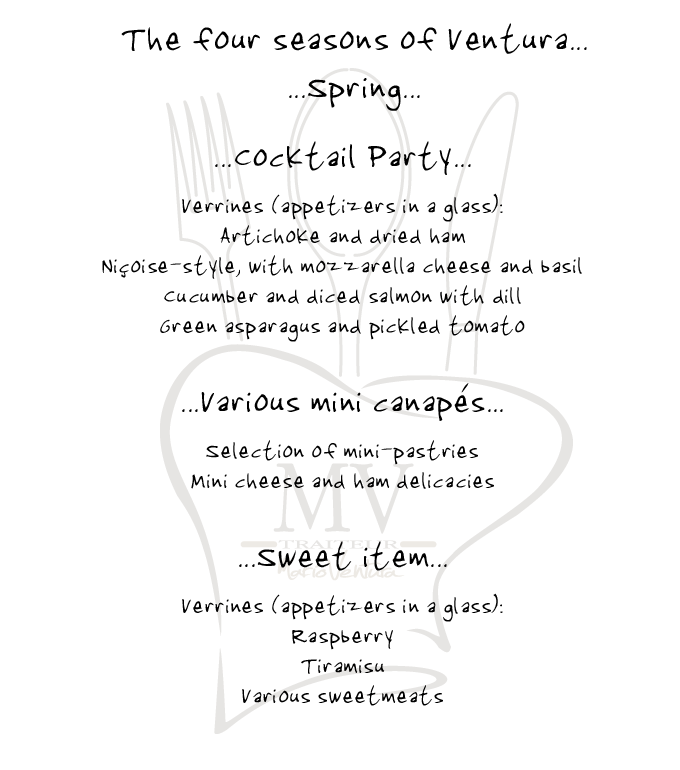 The four seasons of Ventura...
...Spring...
...Cocktail Party...
Verrines (appetizers in a glass):
Artichoke and dried ham
Niçoise-style, with mozzarella cheese and basil
Cucumber and diced salmon with dill
Green asparagus and pickled tomato
...Various mini canapés...
Selection of mini-pastries
Mini cheese and ham delicacies
MV
TRAITEUR
...Sweet item...
Mario Ventura
Verrines (appetizers in a glass):
Raspberry
Tiramisu
Various sweetmeats